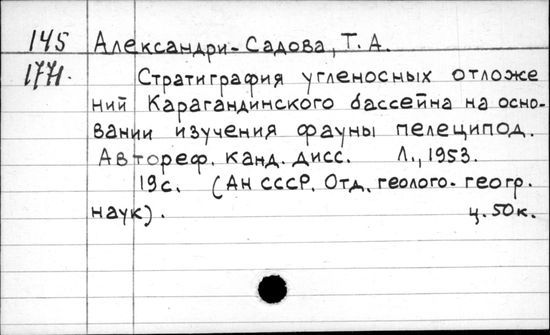 145 Александри-Садова, Т. А.
1771. Стратиграфия угленосных отложе
ний Карагандинского бассейна на осно-
вании изучения фауны пелеципод.
Автореф. канд. дисс. Л., 1953.
19с. (АН СССР. Отд. геолого-геогр.
наук). ц. 50к.